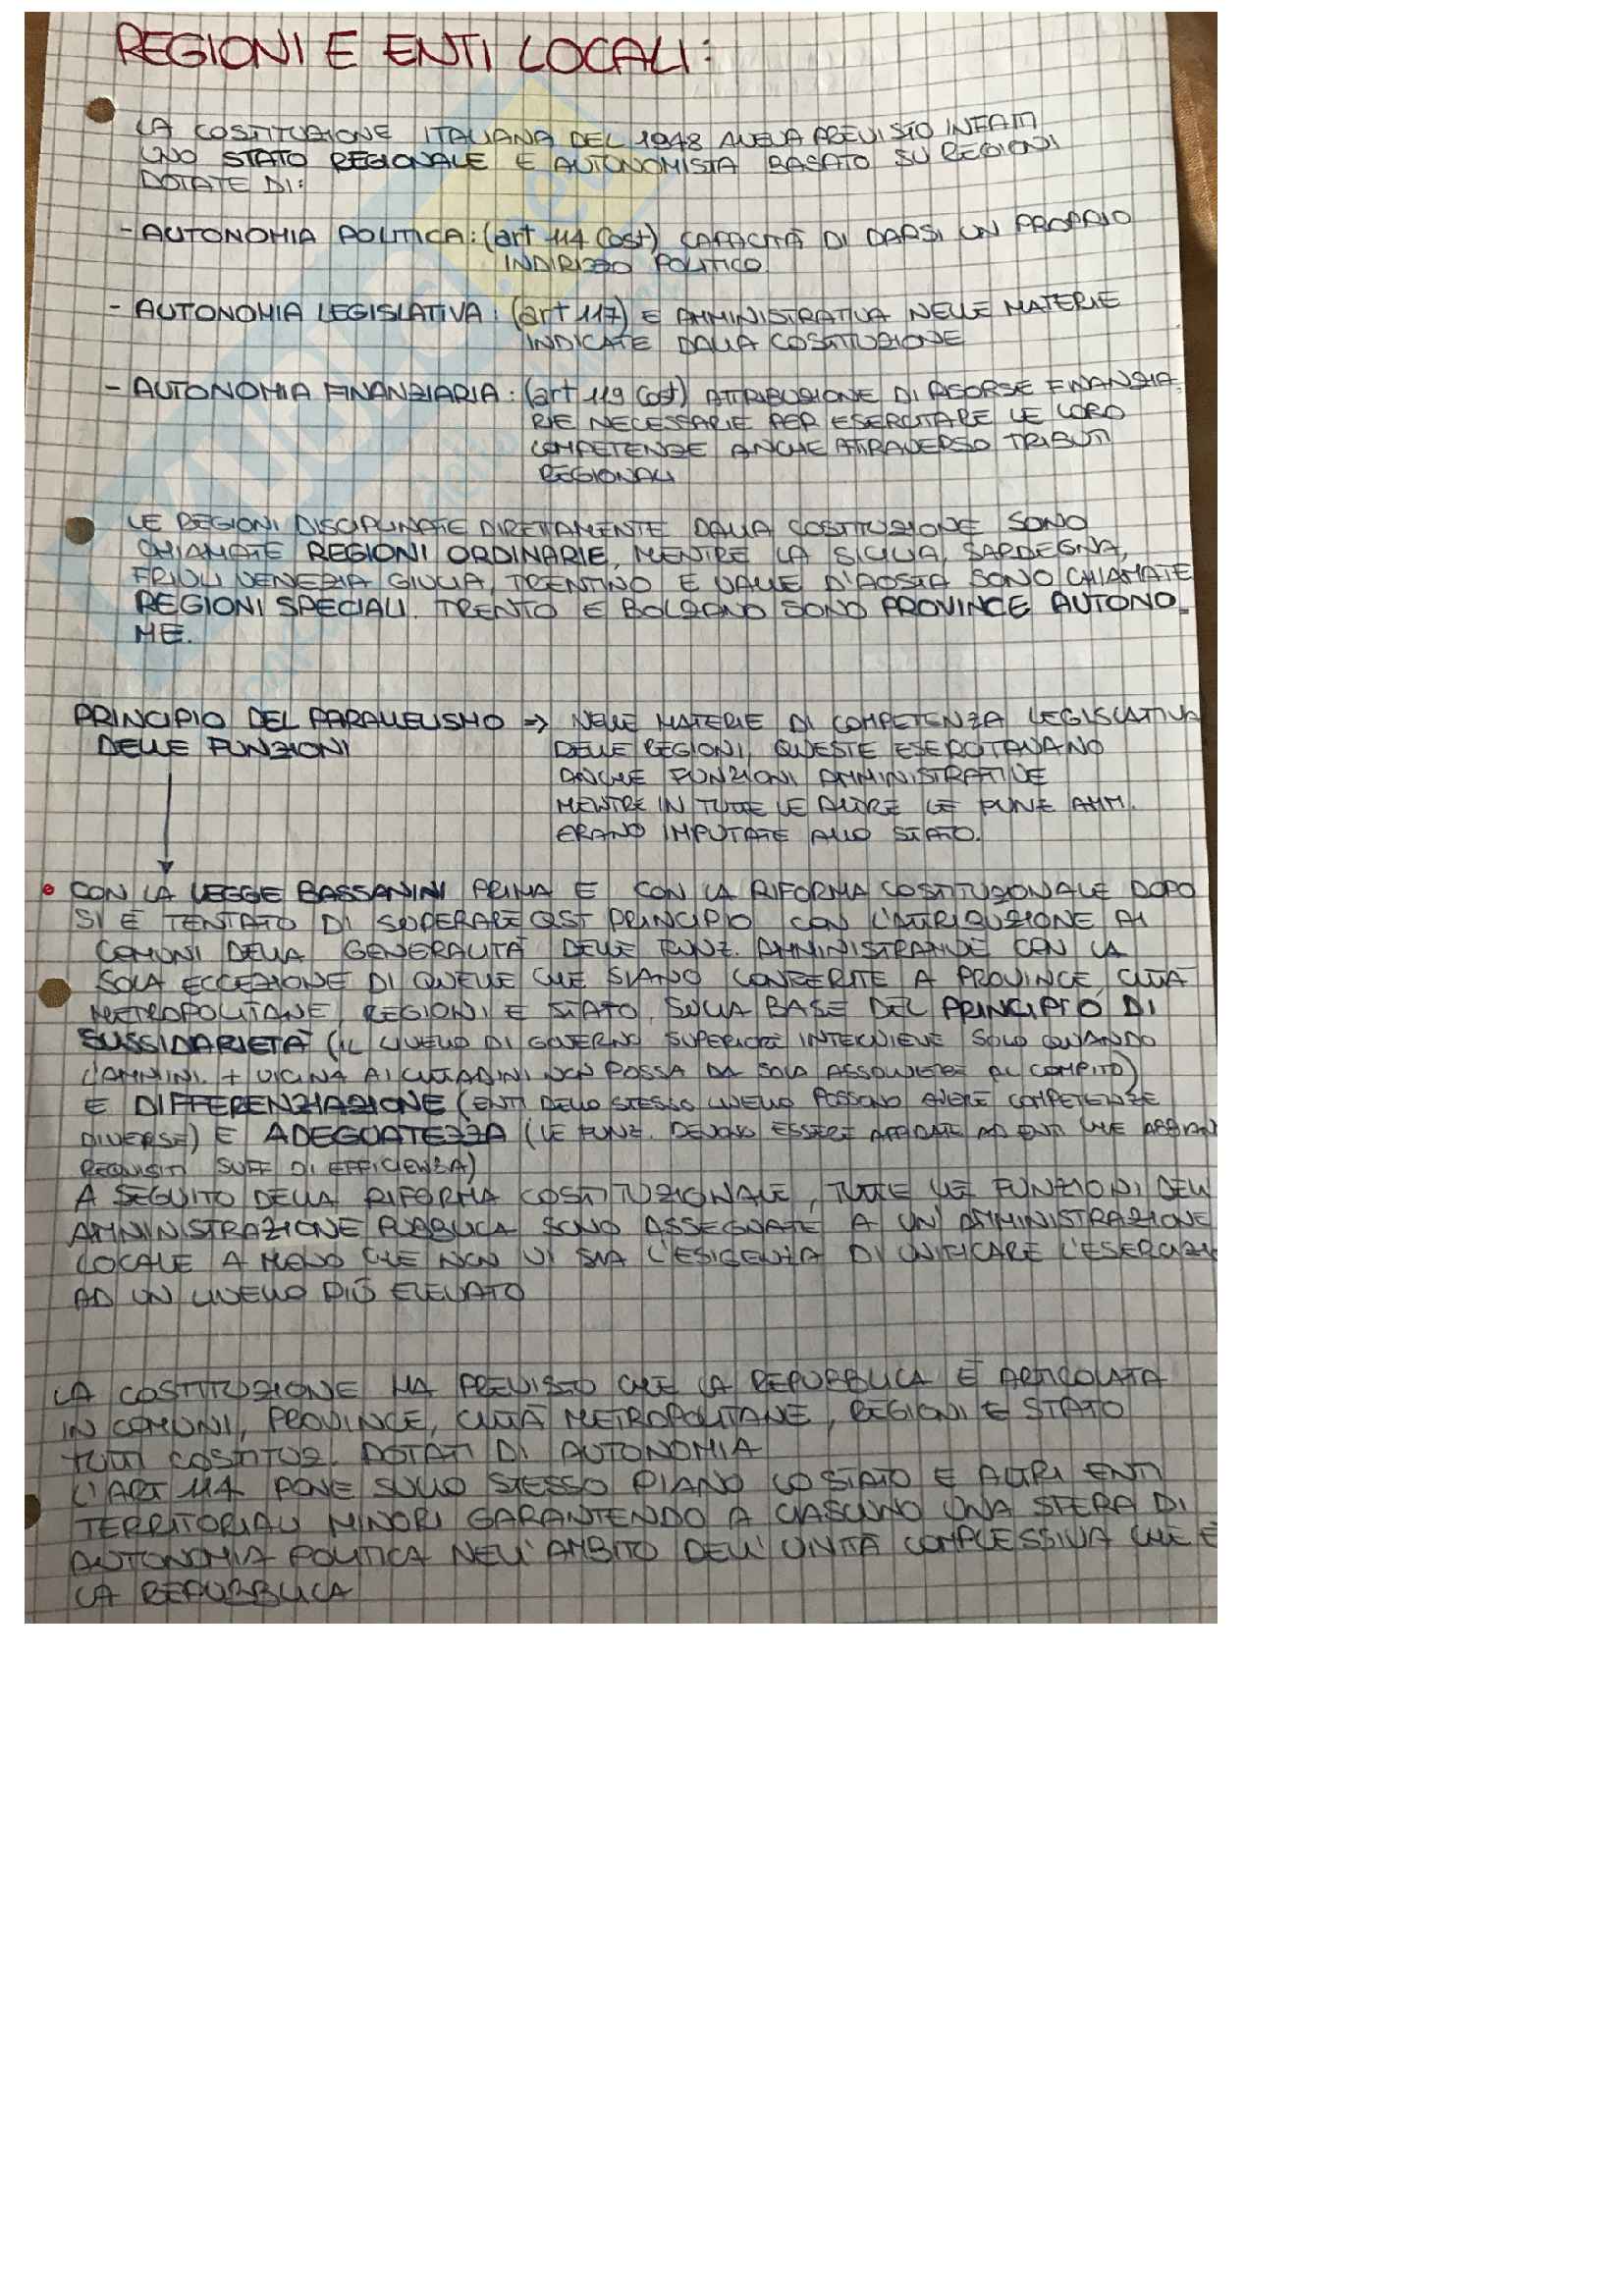 REGIONI E ENTI LOCALI:
LA COSTITUZIONE ITALIANA DEL 1948 AVEVA PREVISTO INFATTI
UNO STATO REGIONALE E AUTONOMISTA BASATO SU REGIONI
DOTATE DI:
- AUTONOMIA POLITICA: (art 114 Cost) CAPACITÀ DI DARSI UN PROPRIO
INDIRIZZO POLITICO
- AUTONOMIA LEGISLATIVA: (art 117) E AMMINISTRATIVA NELLE MATERIE
INDICATE DALLA COSTITUZIONE
- AUTONOMIA FINANZIARIA: (art 119 Cost) ATTRIBUZIONE DI RISORSE FINANZIA-
RIE NECESSARIE PER ESERCITARE LE LORO
COMPETENZE ANCHE ATTRAVERSO TRIBUTI
REGIONALI
LE REGIONI DISCIPLINATE DIRETTAMENTE DALLA COSTITUZIONE SONO
CHIAMATE REGIONI ORDINARIE, MENTRE LA SICILIA, SARDEGNA,
FRIULI VENEZIA GIULIA, TRENTINO E VALLE D'AOSTA SONO CHIAMATE
REGIONI SPECIALI. TRENTO E BOLZANO SONO PROVINCE AUTONO-
ME.
PRINCIPIO DEL PARALLELISMO => NELLE MATERIE DI COMPETENZA LEGISLATIVA
DELLE FUNZIONI DELLE REGIONI, QUESTE ESERCITAVANO
ANCHE FUNZIONI AMMINISTRATIVE
MENTRE IN TUTTE LE ALTRE LE FUNZ AMM.
ERANO IMPUTATE ALLO STATO.
• CON LA LEGGE BASSANINI PRIMA E CON LA RIFORMA COSTITUZIONALE DOPO
SI È TENTATO DI SUPERARE QST PRINCIPIO CON L'ATTRIBUZIONE AI
COMUNI DELLA GENERALITÀ DELLE FUNZ. AMMINISTRATIVE CON LA
SOLA ECCEZIONE DI QUELLE CHE SIANO CONFERITE A PROVINCE, CITTÀ
METROPOLITANE, REGIONI E STATO, SULLA BASE DEL PRINCIPIO DI
SUSSIDARIETÀ (IL LIVELLO DI GOVERNO SUPERIORE INTERVIENE SOLO QUANDO
L'AMMINI. + VICINA AI CITTADINI NON POSSA DA SOLA ASSOLVERE AL COMPITO)
E DIFFERENZIAZIONE (ENTI DELLO STESSO LIVELLO POSSONO AVERE COMPETENZE
DIVERSE) E ADEGUATEZZA (LE FUNZ. DEVONO ESSERE AFFIDATE AD ENTI CHE ABBIAN
REQUISITI SUFF DI EFFICIENZA)
A SEGUITO DELLA RIFORMA COSTITUZIONALE, TUTTE LE FUNZIONI DELL'
AMMINISTRAZIONE PUBBLICA SONO ASSEGNATE A UN' AMMINISTRAZIONE
LOCALE A MENO CHE NON VI SIA L'ESIGENZA DI UNIFICARE L'ESERCIZI
AD UN LIVELLO PIÙ ELEVATO
LA COSTITUZIONE HA PREVISTO CHE LA REPUBBLICA È ARTICOLATA
IN COMUNI, PROVINCE, CITTÀ METROPOLITANE, REGIONI E STATO
TUTTI COSTITUZ. DOTATI DI AUTONOMIA
L'ART 114 PONE SULLO STESSO PIANO LO STATO E ALTRI ENTI
TERRITORIALI MINORI GARANTENDO A CIASCUNO UNA SFERA DI
AUTONOMIA POLITICA NELL'AMBITO DELL'UNITÀ COMPLESSIVA CHE È
LA REPUBBLICA